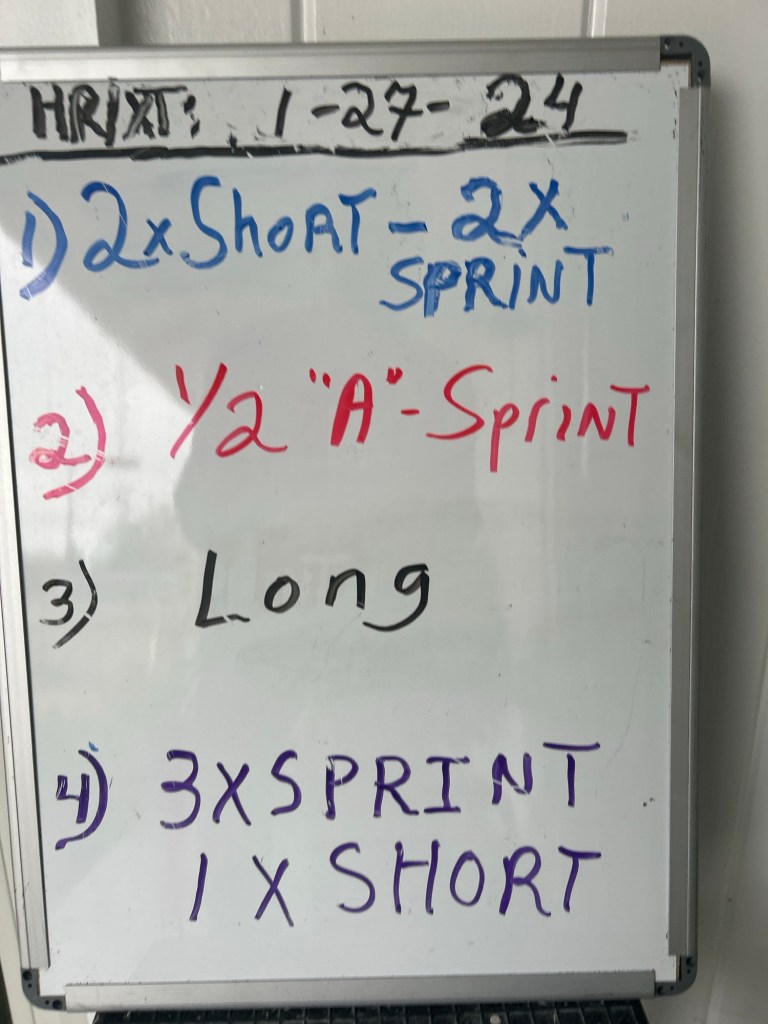 HR/XT: 1-27-24
1) 2xShORT - 2X
SPRiNT
2) 1/2 "A"-SpriNT
3) Long
4) 3XSPRINT
1 X SHORT